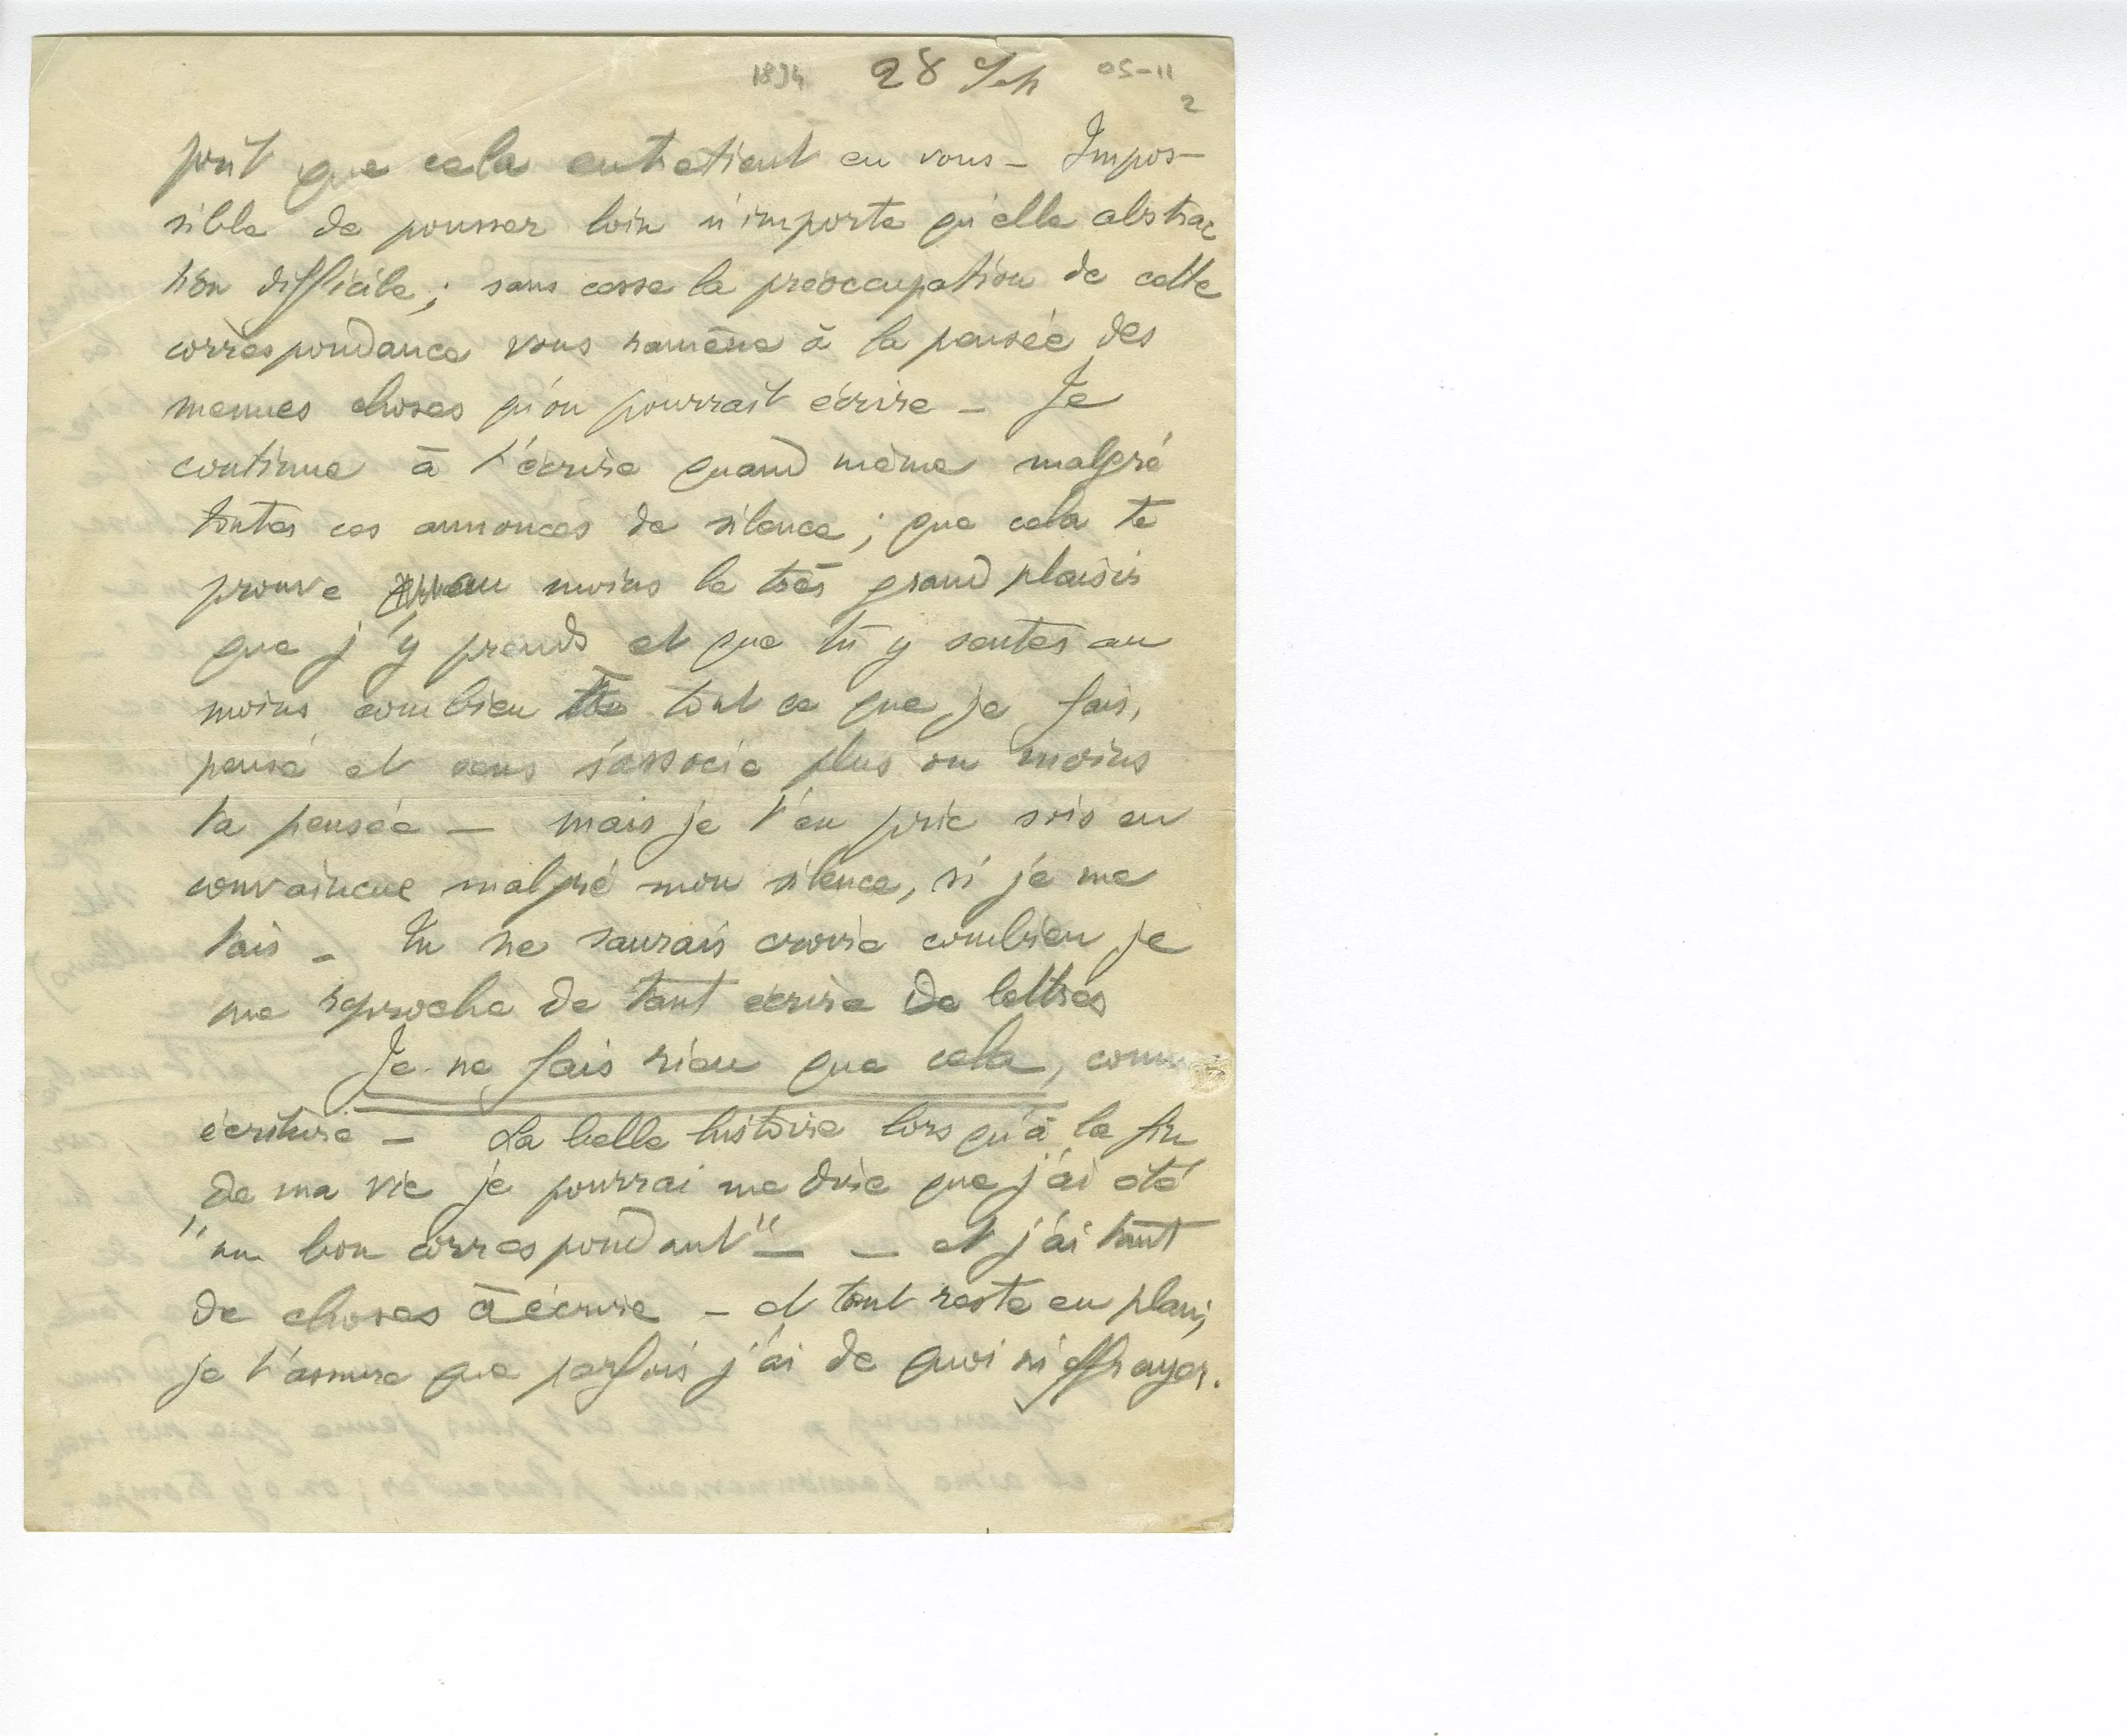 1894 28 Feb 05-11
2
que cela entretient en vous – Impos-
sible de pousser loin n'importe qu'elle abstrac
tion difficile ; sans cesse la préoccupation de cette
correspondance vous ramène à la pensée des
menues choses qu'on pourrait écrire – Je
continue à t'écrire quand même malgré
toutes ces annonces de silence ; que cela te
prouve au moins le très grand plaisir
que j'y prends et que tu y sentes au
moins combien tout ce que je fais,
pense et sens s'associe plus ou moins
ta pensée – mais je t'en prie sois en
convaincue malgré mon silence, si je me
tais – Tu ne saurais croire combien je
me reproche de tant écrire de lettres
Je ne fais rien que cela, comme
écriture – La belle histoire lorsqu'à la fin
de ma vie je pourrai me dire que j'ai été
"un bon correspondant" – – et j'ai tant
de choses à écrire – et tout reste en plan ;
je t'assure que parfois j'ai de quoi m'effrayer.